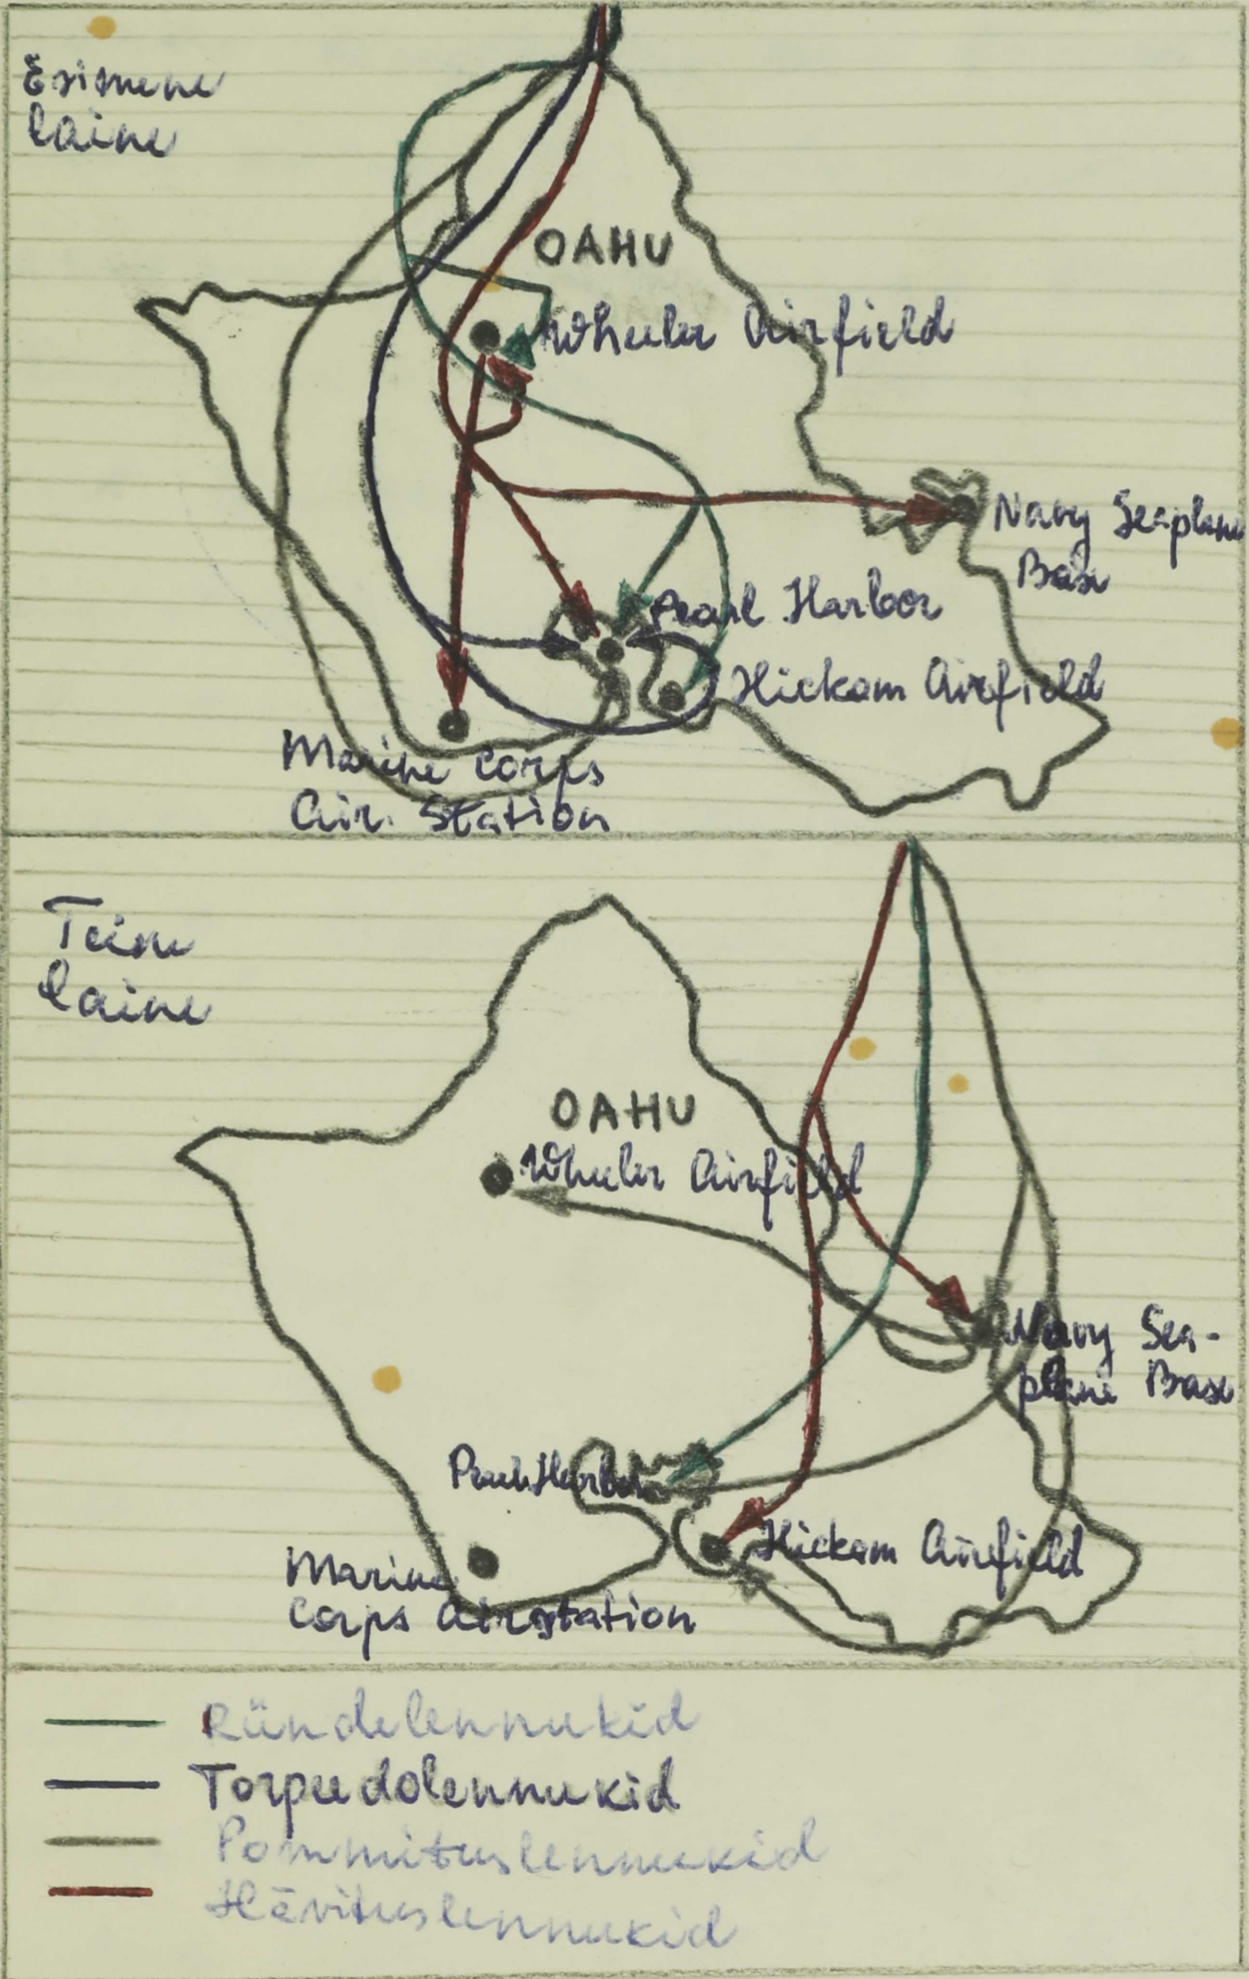 Esimene
laine
OAHU
Wheeler Airfield
Navy Seaplane
Base
Pearl Harbor
Hickam Airfield
Marine Corps
Air. Station
Teine
laine
OAHU
Wheeler Airfield
Navy Sea-
plane Base
Pearl Harbor
Hickam Airfield
Marine
Corps Airstation
Ründelennukid
Torpeedolennukid
Pommituslennukid
Hävituslennukid